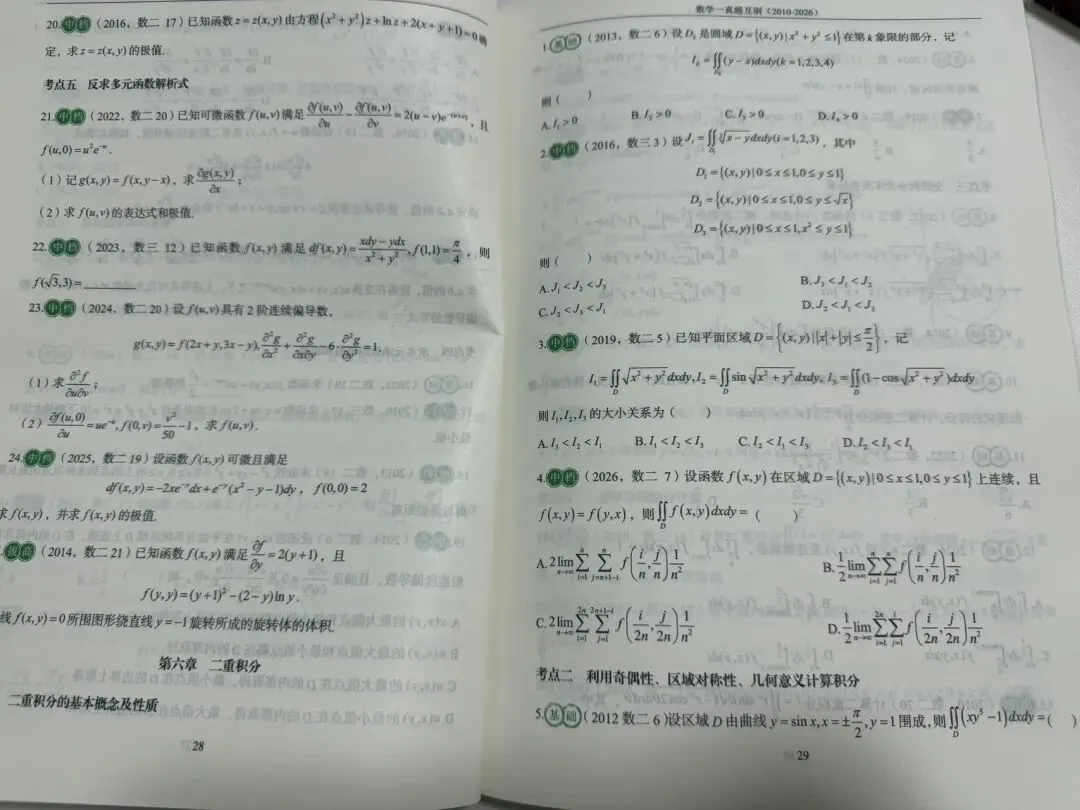 20. 中档 (2016, 数二 17) 已知函数 z=z(x,y) 由方程 (x²+y²)z+ln z+2(x+y+1)=0 确
定, 求 z=z(x,y) 的极值.
考点五 反求多元函数解析式
21. 中档 (2022, 数二 20) 已知可微函数 f(u,v) 满足 ∂f(u,v)/∂u − ∂f(u,v)/∂v = 2(u−v)e^{-(u+v)}, 且
f(u,0)=u²e^{-u}.
(1) 记 g(x,y)=f(x,y−x), 求 ∂g(x,y)/∂x;
(2) 求 f(u,v) 的表达式和极值.
22. 中档 (2023, 数三 12) 已知函数 f(x,y) 满足 df(x,y)=(xdy−ydx)/(x²+y²), f(1,1)=π/4, 则
f(√3,3)=______
23. 中档 (2024, 数二 20) 设 f(u,v) 具有 2 阶连续偏导数,
g(x,y)=f(2x+y,3x−y), ∂²g/∂x²+∂²g/∂x∂y−6·∂²g/∂y²=1.
(1) 求 ∂²f/∂u∂v;
(2) ∂f(u,0)/∂u=ue^{-u}, f(0,v)=v²/50−1, 求 f(u,v).
24. 中档 (2025, 数二 19) 设函数 f(x,y) 可微且满足
df(x,y)=−2xe^{-y}dx+e^{-y}(x²−y−1)dy, f(0,0)=2
求 f(x,y), 并求 f(x,y) 的极值.
拔高 (2014, 数二 21) 已知函数 f(x,y) 满足 ∂f/∂y=2(y+1), 且
f(y,y)=(y+1)²−(2−y)ln y.
线 f(x,y)=0 所围图形绕直线 y=−1 旋转所成的旋转体的体积.
第六章 二重积分
二重积分的基本概念及性质
28
数学一真题互刷(2010-2026)
1. 基础 (2013, 数二 6) 设 D_k 是圆域 D={(x,y)|x²+y²≤1} 在第 k 象限的部分, 记
I_k=∬_{D_k}(y−x)dxdy(k=1,2,3,4)
则 ( )
A. I₁>0 B. I₂>0 C. I₃>0 D. I₄>0
2. 中档 (2016, 数三 3) 设 J_i=∬_{D_i}∛(x−y)dxdy(i=1,2,3), 其中
D₁={(x,y)|0≤x≤1,0≤y≤1}
D₂={(x,y)|0≤x≤1,0≤y≤√x}
D₃={(x,y)|0≤x≤1,x²≤y≤1}
则 ( )
A. J₁<J₂<J₃ B. J₃<J₁<J₂
C. J₂<J₃<J₁ D. J₂<J₁<J₃
3. 中档 (2019, 数二 5) 已知平面区域 D={(x,y)||x|+|y|≤π/2}, 记
I₁=∬_D√(x²+y²)dxdy, I₂=∬_D sin√(x²+y²)dxdy, I₃=∬_D(1−cos√(x²+y²))dxdy
则 I₁,I₂,I₃ 的大小关系为 ( )
A. I₃<I₂<I₁ B. I₁<I₂<I₃ C. I₂<I₁<I₃ D. I₂<I₃<I₁
4. 中档 (2026, 数二 7) 设函数 f(x,y) 在区域 D={(x,y)|0≤x≤1,0≤y≤1} 上连续, 且
f(x,y)=f(y,x), 则 ∬_D f(x,y)dxdy= ( )
A. 2lim_{n→∞}∑_{i=1}^{n}∑_{j=n+1−i}^{n} f(i/n, j/n)1/n² B. 1/2 lim_{n→∞}∑_{i=1}^{n}∑_{j=1}^{n} f(i/n, j/n)1/n²
C. 2lim_{n→∞}∑_{i=1}^{2n}∑_{j=1}^{2n+1−i} f(i/2n, j/2n)1/n² D. 1/2 lim_{n→∞}∑_{i=1}^{2n}∑_{j=1}^{i} f(i/2n, j/2n)1/n²
考点二 利用奇偶性、区域对称性、几何意义计算积分
5. 基础 (2012 数二 6) 设区域 D 由曲线 y=sin x, x=±π/2, y=1 围成, 则 ∬_D(xy⁵−1)dxdy=( )
29